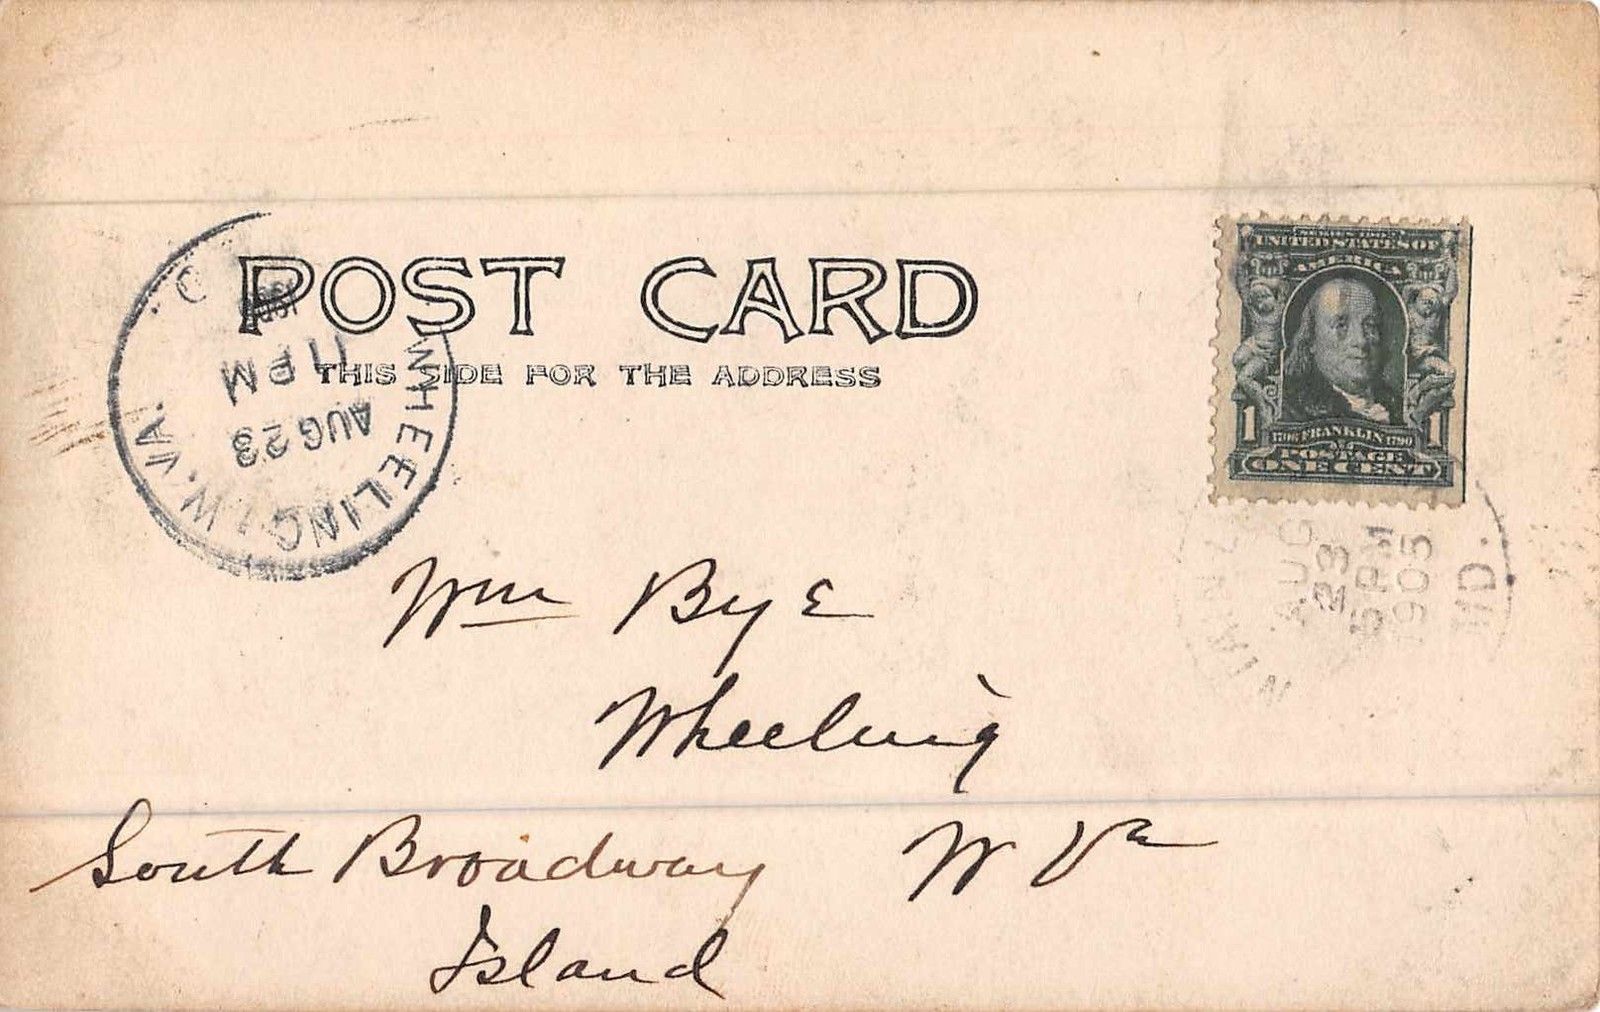 POST CARD
THIS SIDE FOR THE ADDRESS
WHEELING, W. VA.
AUG 23
11 PM
1905
SERIES 1902
UNITED STATES OF
AMERICA
1 1706 FRANKLIN 1790 1
POSTAGE
ONE CENT
AUG
23
5 PM
1905
MD.
Wm Bye
Wheeling
South Broadway W Va
Island